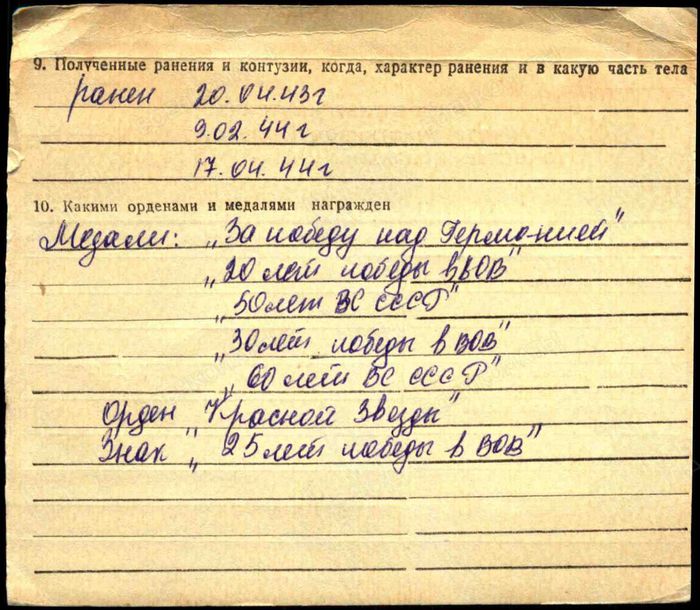 9. Полученные ранения и контузии, когда, характер ранения и в какую часть тела
ранен 20.04.43г
9.02.44г
17.04.44г
10. Какими орденами и медалями награжден
Медали: „За победу над Германией"
„20 лет победы в ВОВ"
„50 лет ВС СССР"
„30 лет победы в ВОВ"
„60 лет ВС СССР"
Орден „Красной Звезды"
Знак „25 лет победы в ВОВ"